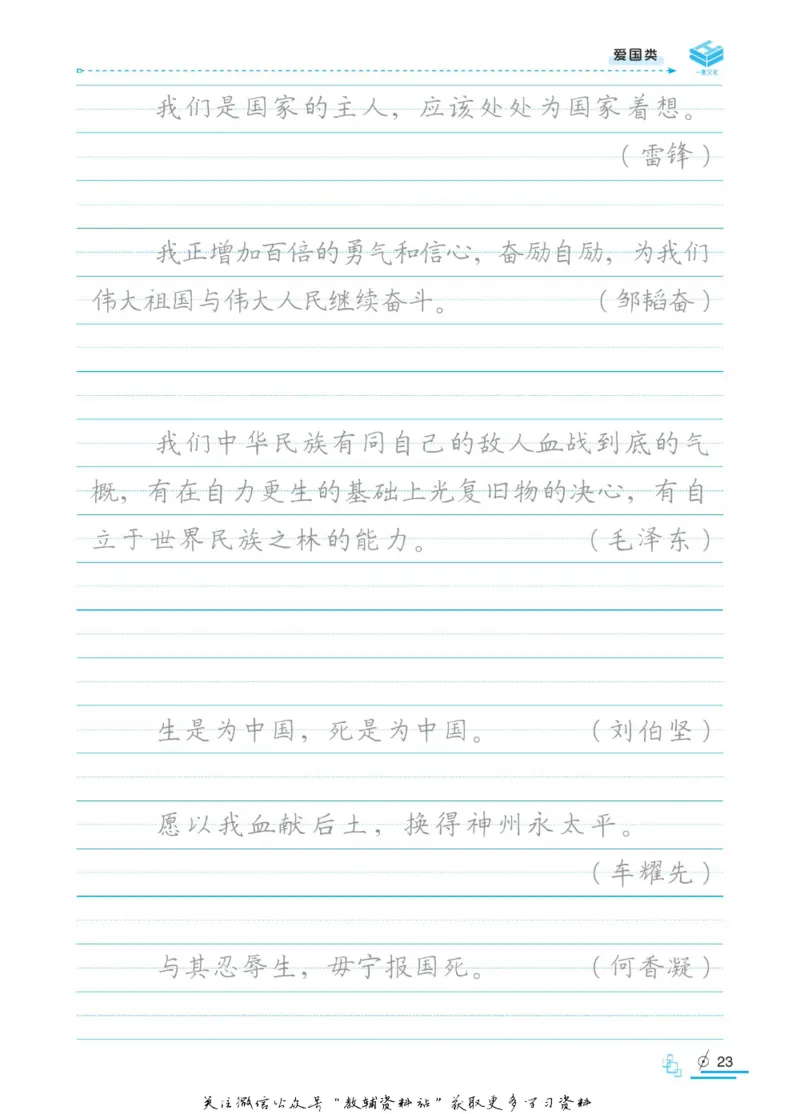 爱国类
一本文化
我们是国家的主人，应该处处为国家着想。
（雷锋）
我正增加百倍的勇气和信心，奋励自励，为我们
伟大祖国与伟大人民继续奋斗。（邹韬奋）
我们中华民族有同自己的敌人血战到底的气
概，有在自力更生的基础上光复旧物的决心，有自
立于世界民族之林的能力。（毛泽东）
生是为中国，死是为中国。（刘伯坚）
愿以我血献后土，换得神州永太平。
（车耀先）
与其忍辱生，毋宁报国死。（何香凝）
23
关注微信公众号“教辅资料站”获取更多学习资料